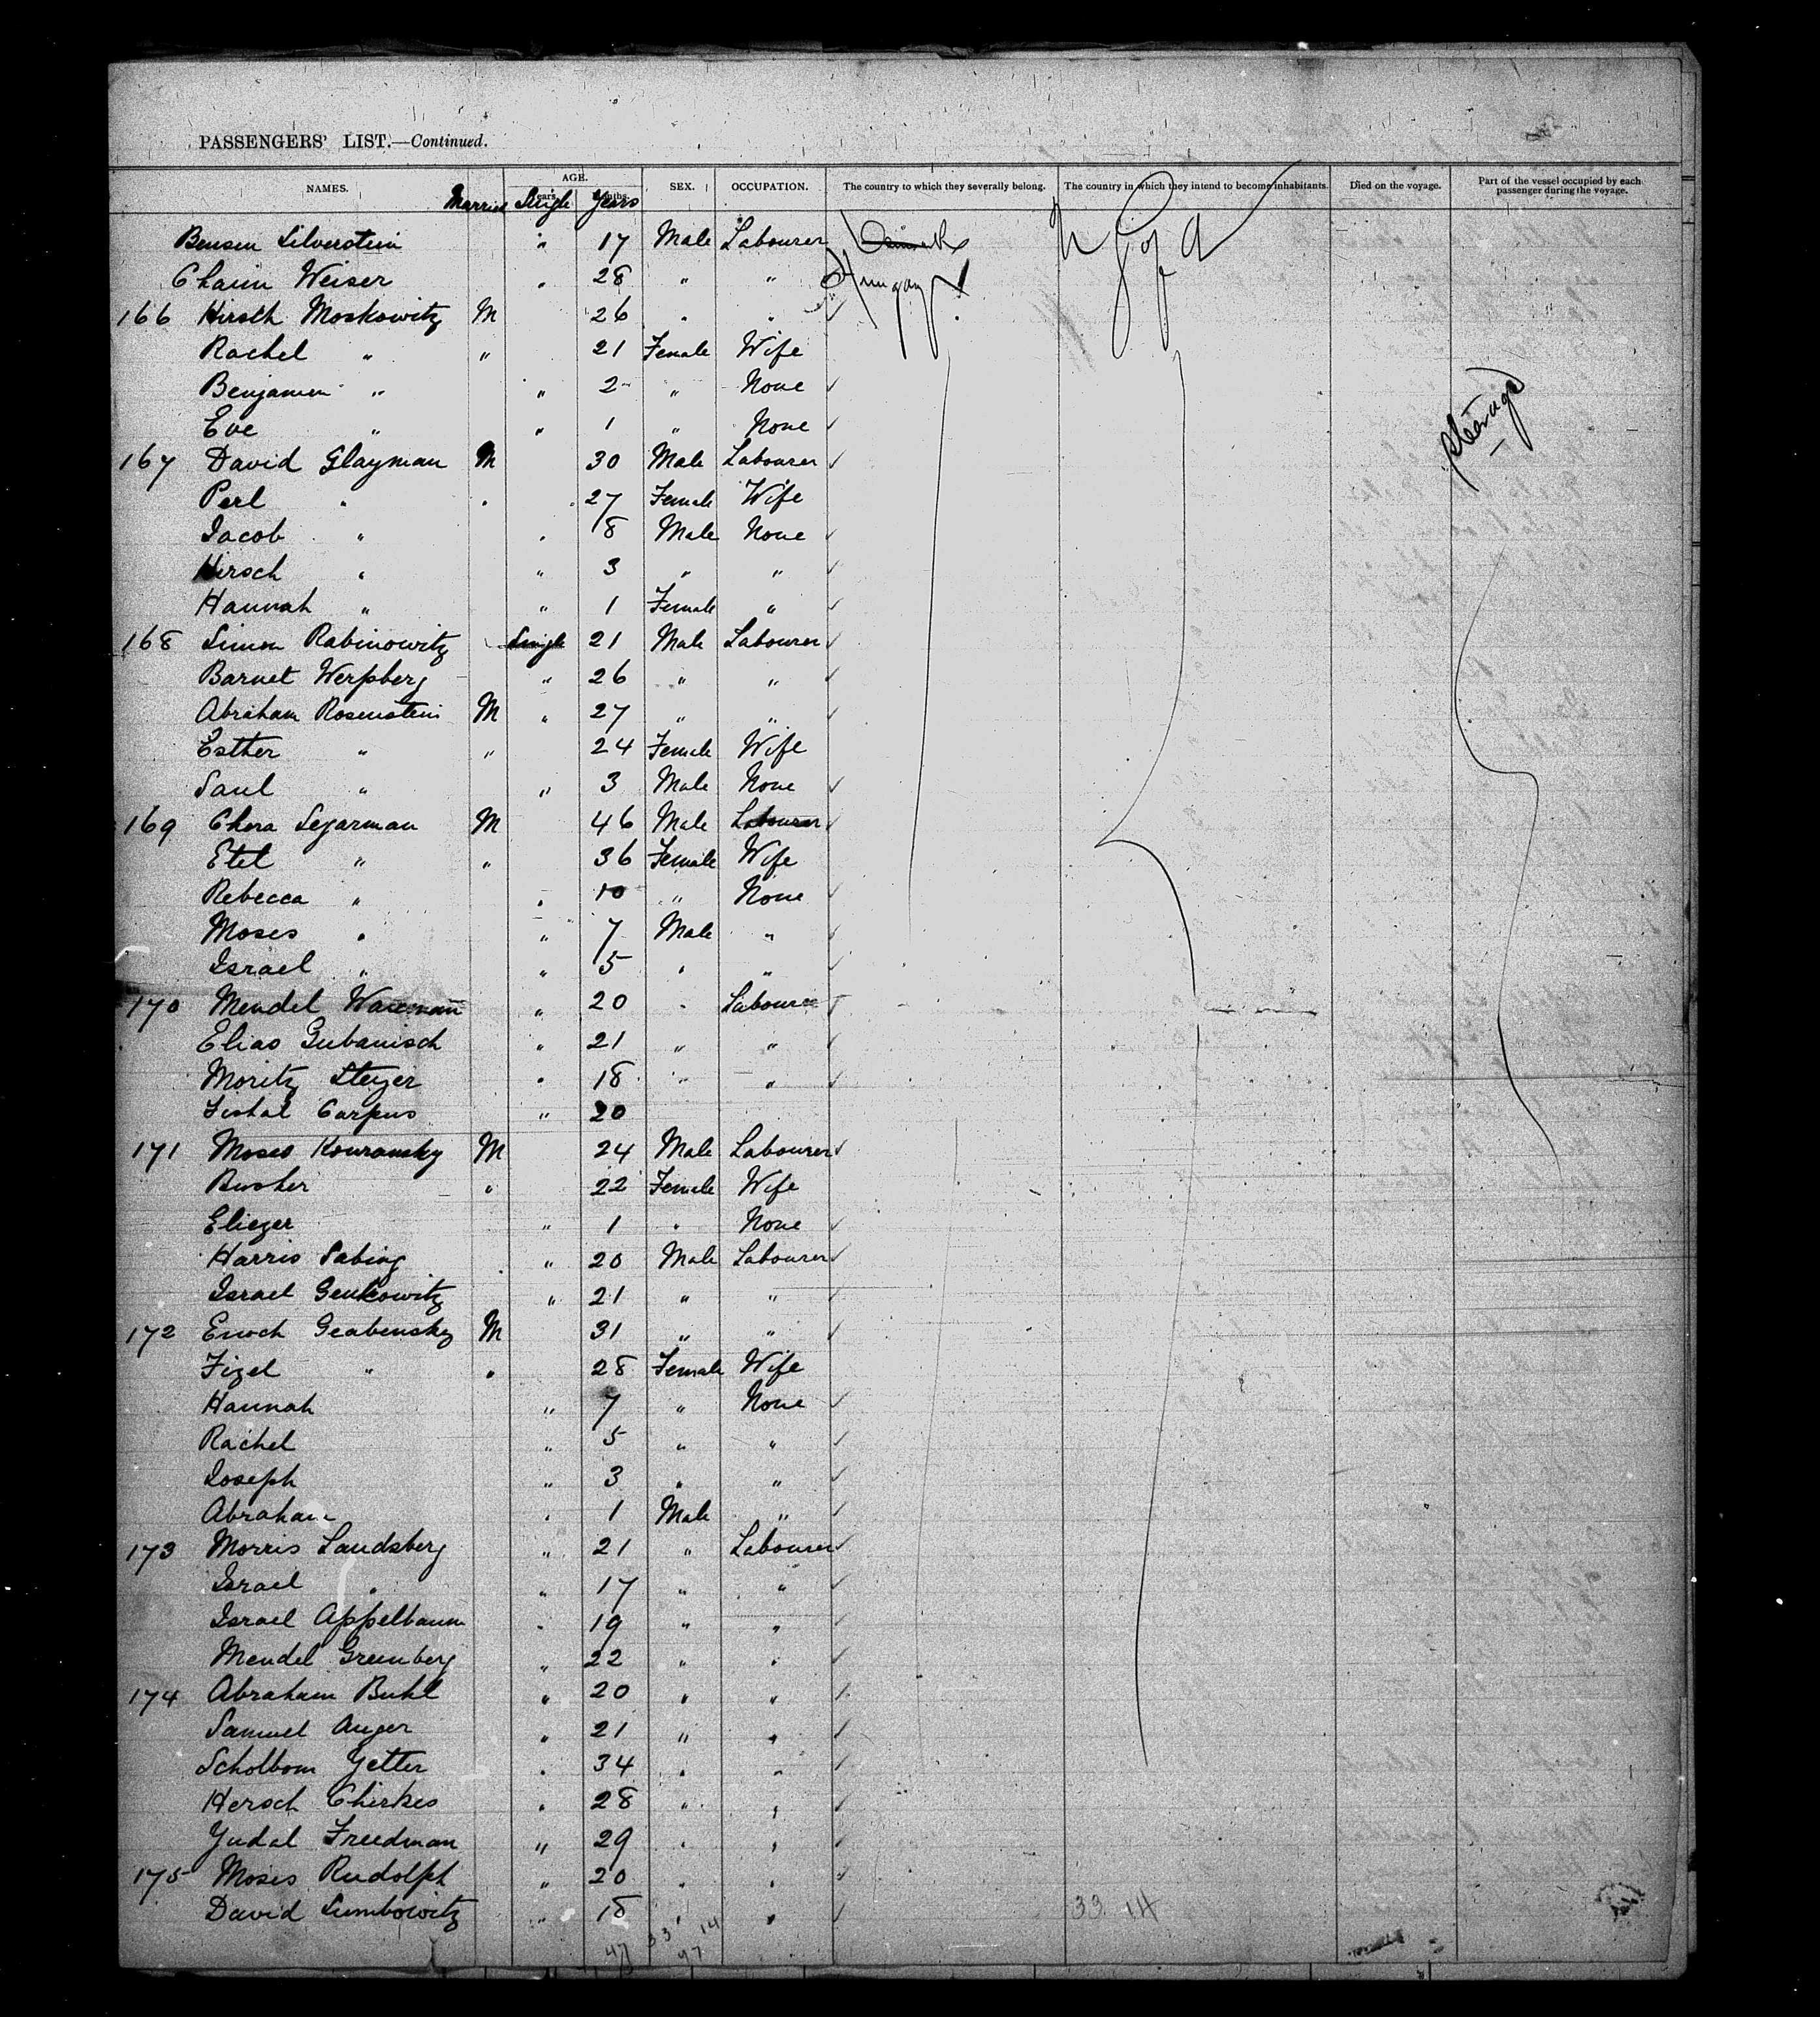 PASSENGERS' LIST.—Continued.
NAMES. AGE. Years. Months. SEX. OCCUPATION. The country to which they severally belong. The country in which they intend to become inhabitants. Died on the voyage. Part of the vessel occupied by each passenger during the voyage.
Married Single Years
Bensen Silverstein " 17 Male Labourer
Chaim Weiser " 28 " " Hungary
U S of A
166 Hirsch Moskowitz M 26 " "
Rachel " " 21 Female Wife
Benjamin " " 2 " None
Eve " " 1 " None
Steerage
167 David Glayman M 30 Male Labourer
Perl " " 27 Female Wife
Jacob " " 8 Male None
Hirsch " " 3 " "
Hannah " " 1 Female "
168 Simon Rabinowitz Single 21 Male Labourer
Barnet Werpberg " 26 " "
Abraham Rosenstein M " 27 " "
Esther " " 24 Female Wife
Saul " " 3 Male None
169 Chera Segarman M 46 Male Labourer
Etel " " 36 Female Wife
Rebecca " " 10 " None
Moses " " 7 Male "
Israel " " 5 " "
170 Mendel Waxman " 20 " Labourer
Elias Gubanisch " 21 " "
Moritz Steyer " 18 " "
Fishal Carpus " 20
171 Moses Kouransky M 24 Male Labourer
Busher " 22 Female Wife
Eliezer " 1 " None
Harris Sabing " 20 Male Labourer
Israel Genkowitz " 21 " "
172 Enoch Grabensky M 31 " "
Figel " " 28 Female Wife
Hannah " 7 " None
Rachel " 5 " "
Joseph " 3 " "
Abraham " 1 Male "
173 Morris Landsberg " 21 " Labourer
Israel " " 17 " "
Israel Appelbaum " 19 " "
Mendel Greenberg " 22 " "
174 Abraham Buhl " 20 " "
Samuel Auger " 21 " "
Scholbom Yetter " 34 " "
Hersch Chirkes " 28 " "
Yudal Freedman " 29 " "
175 Moses Rudolph " 20 " "
David Lumbowitz " 18 " "
33 14
47 33 14
47